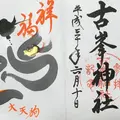 古峯神社
平成三十年六月十日
祥福
大天狗